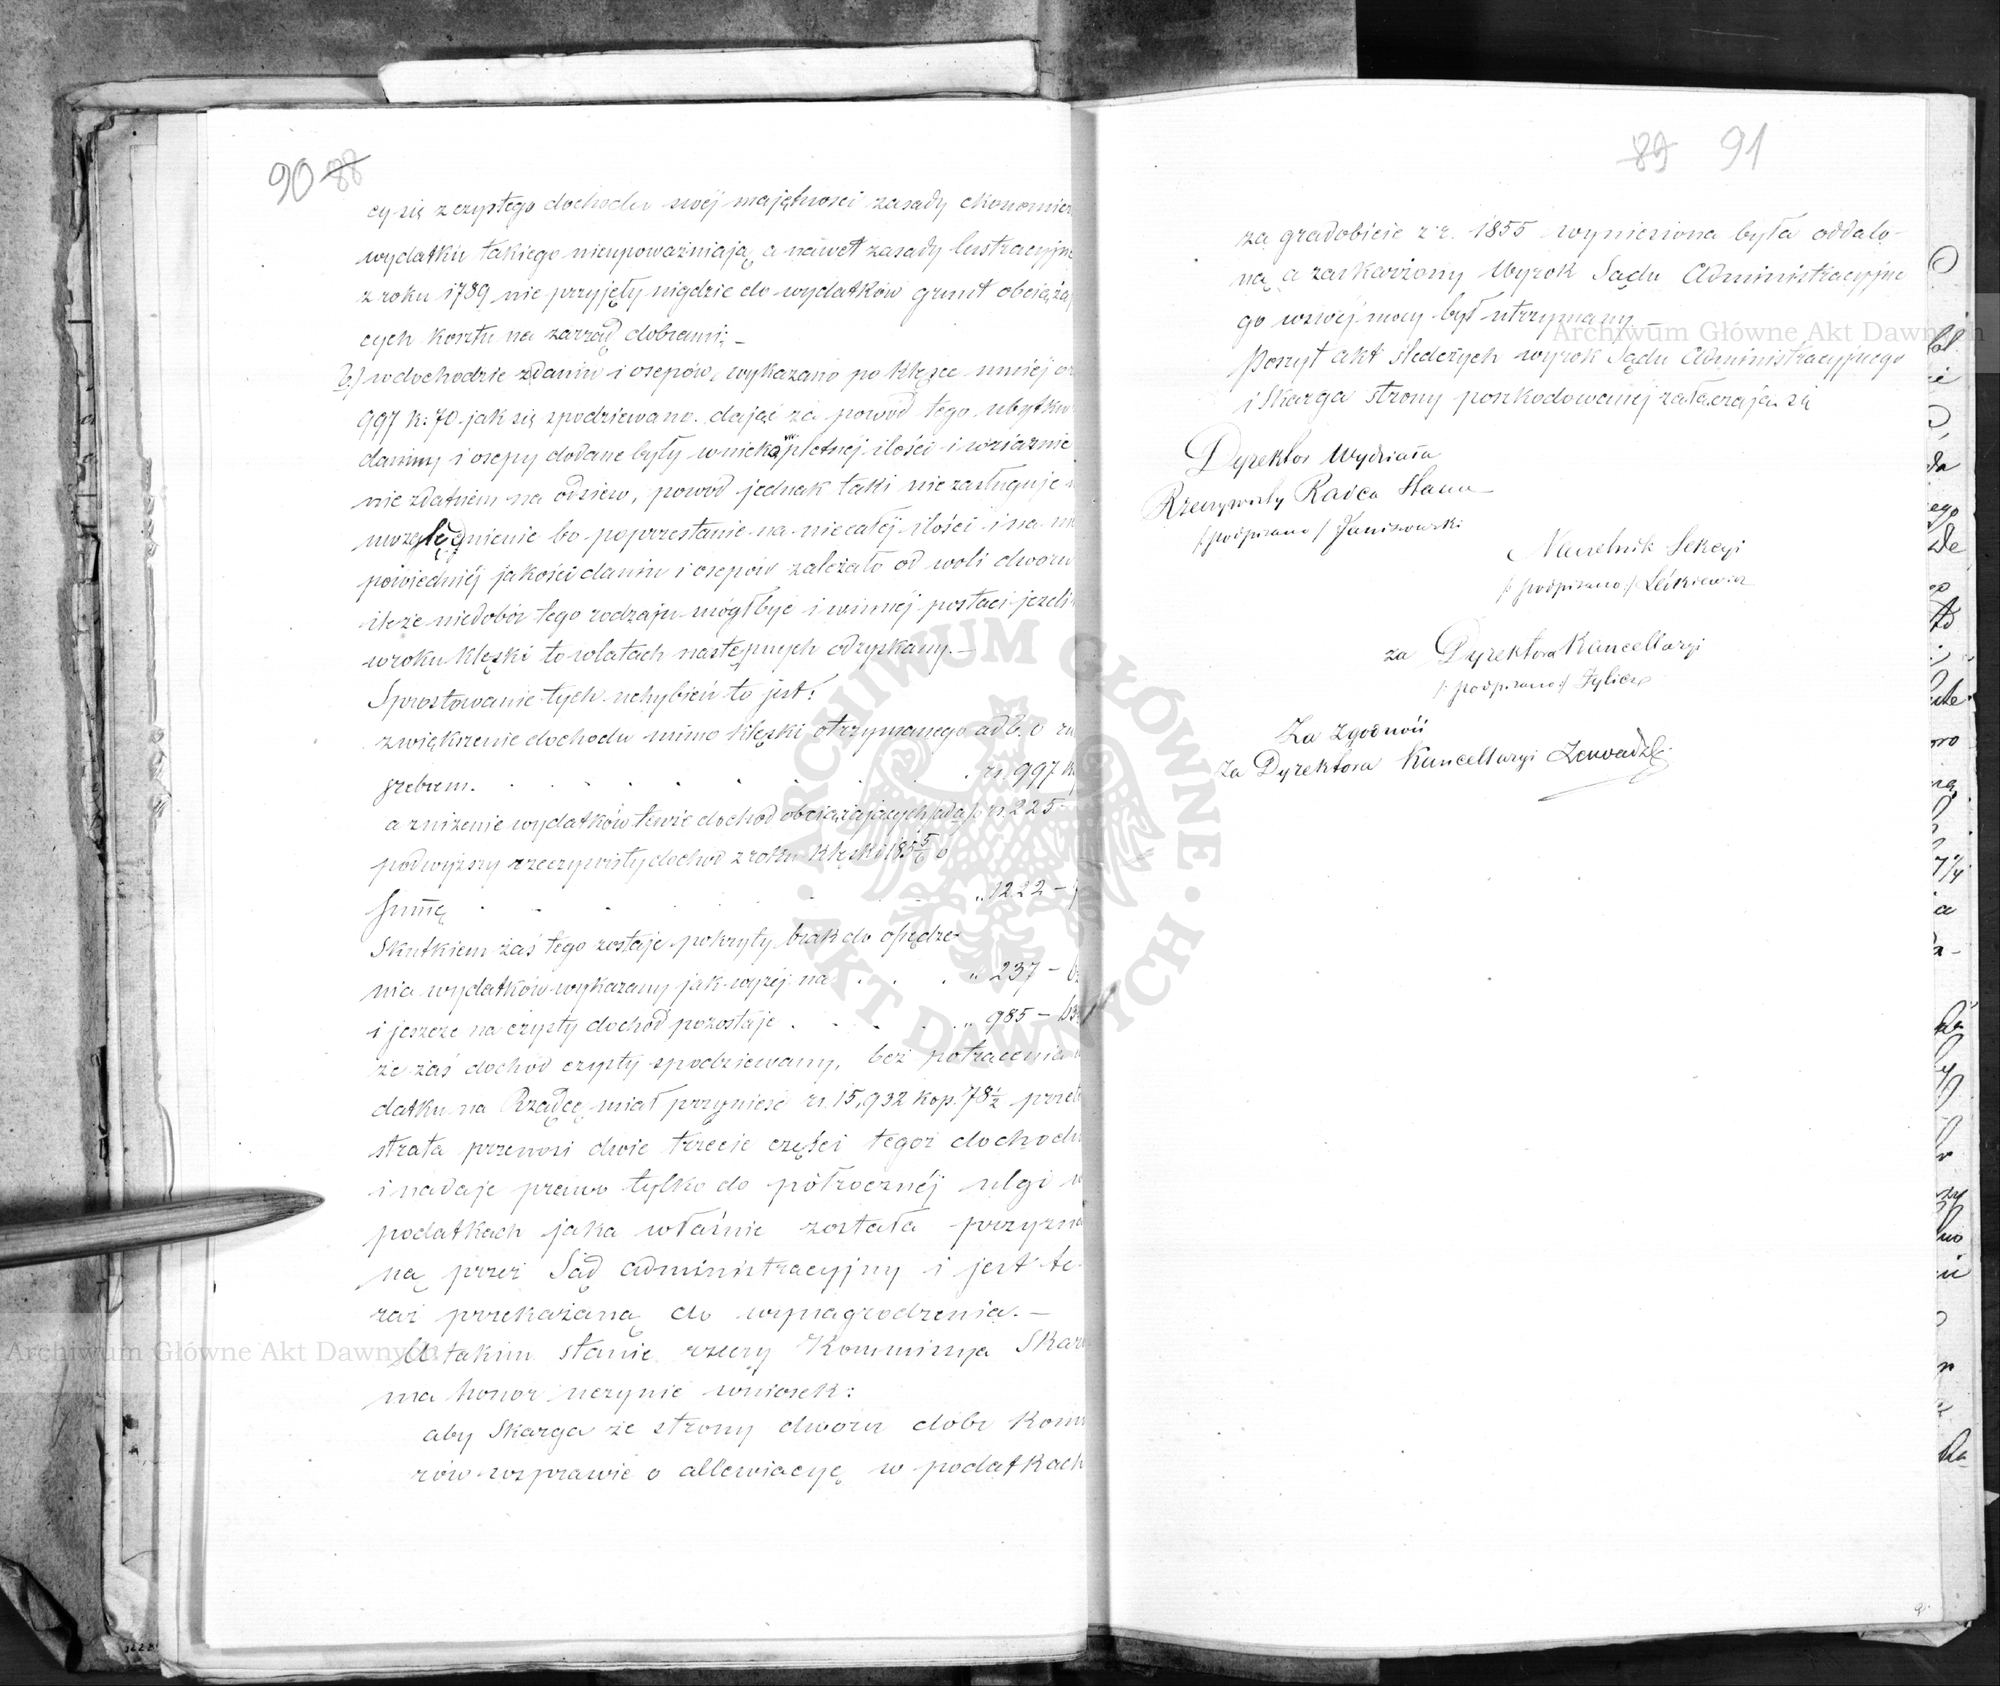 90 88
cy się z czystego dochodu swéj majętności zasady ekonomicz
wydatku takiego nieupoważniają, a nawet zasady lustracyjne
z roku 1789 nie przyjęły nigdzie do wydatków grunt obciąża
cych kosztu na zarząd dobrami; –
b/ w dochodzie z danin i osepów, wykazano po klęsce mniéj o
997 k: 70 jak się spodziewano, dając za powód tego ubytku
daniny i osepy dodane były w niekompletnéj ilości i w ziarnie
niezdatnem na odsiew, powód jednak taki nie zasługuje
uwzględnienie bo poprzestanie na niecałéj ilości i na
powiedniéj jakości danin i osepów zależało od woli dworu
ileże niedobór tego rodzaju mógł być i w innéj postaci jeżeli
w roku klęski to w latach następnych odzyskany. –
Sprostowanie tych uchybień to jest:
zwiększenie dochodu mimo klęski otrzymanego ad b, o ru
srebrem . . . . . . . rs. 997 k
a zniżenie wydatków tenże dochód obciążających /ad a/ o rs. 225 –
podwyższy rzeczywisty dochód z roku klęski 185 5/6 o
summę . . . . . . . „ 1222 –
Skutkiem zaś tego zostaje pokryty brak do opędze-
nia wydatków wykazany jak wyżéj na . . . . „ 237 –
i jeszcze na czysty dochód pozostaje . . . . „ 985 –
że zaś dochód czysty spodziewany, bez potrącenia
datku na Rządcę miał przynieść rs. 15,932 kop. 78 1/2 przeto
strata przenosi dwie trzecie części tegoż dochodu
i nadaje prawo tylko do półrocznéj ulgi w
podatkach jaka właśnie została przyzna
ną przez Sąd administracyjny i jest te-
raz przekazaną do wynagrodzenia. –
W takim stanie rzeczy Kommissya Skar
ma honor uczynić wniosek:
aby Skarga ze strony dworu dóbr Kom
rów w sprawie o allewiacyę w podatkach
89 91
za gradobicie z r. 1855 wyniesiona była oddalo-
ną a zaskarżony Wyrok Sądu Administracyjne
go w swéj mocy był utrzymany –
Poszyt akt śledczych wyrok Sądu Administracyjnego
i Skarga strony poszkodowanéj załaczają się
Dyrektor Wydziału
Rzeczywisty Radca Stanu
/podpisano/ Janiszewski
Naczelnik Sekcyi
/: podpisano :/ Leśkiewicz
za Dyrektora Kancellaryi
/: podpisano :/ Tylicz
Za Zgodność
Za Dyrektora Kancellaryi
Archiwum Główne Akt Dawnych
Archiwum Główne Akt Dawnych
ARCHIWUM GŁÓWNE
AKT DAWNYCH